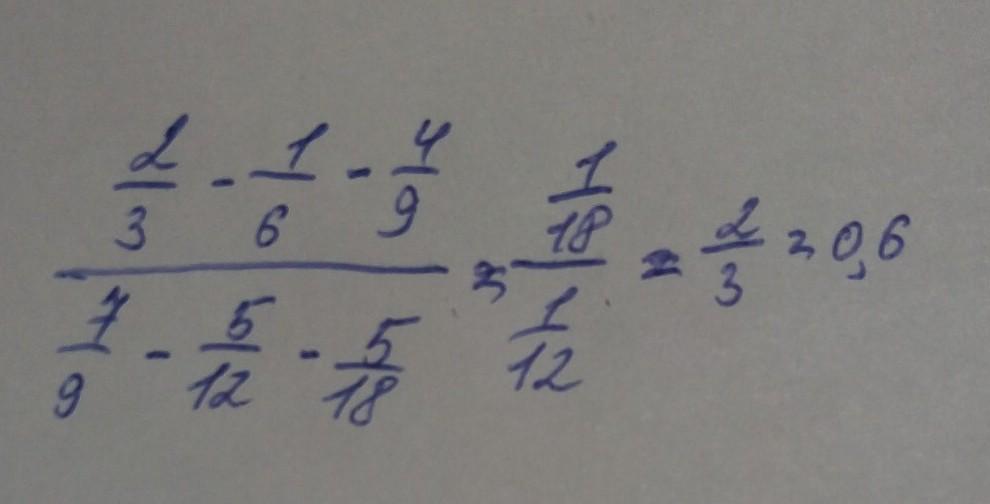 2/3 - 1/6 - 4/9
7/9 - 5/12 - 5/18
= 1/18
1/12
= 2/3 = 0,6